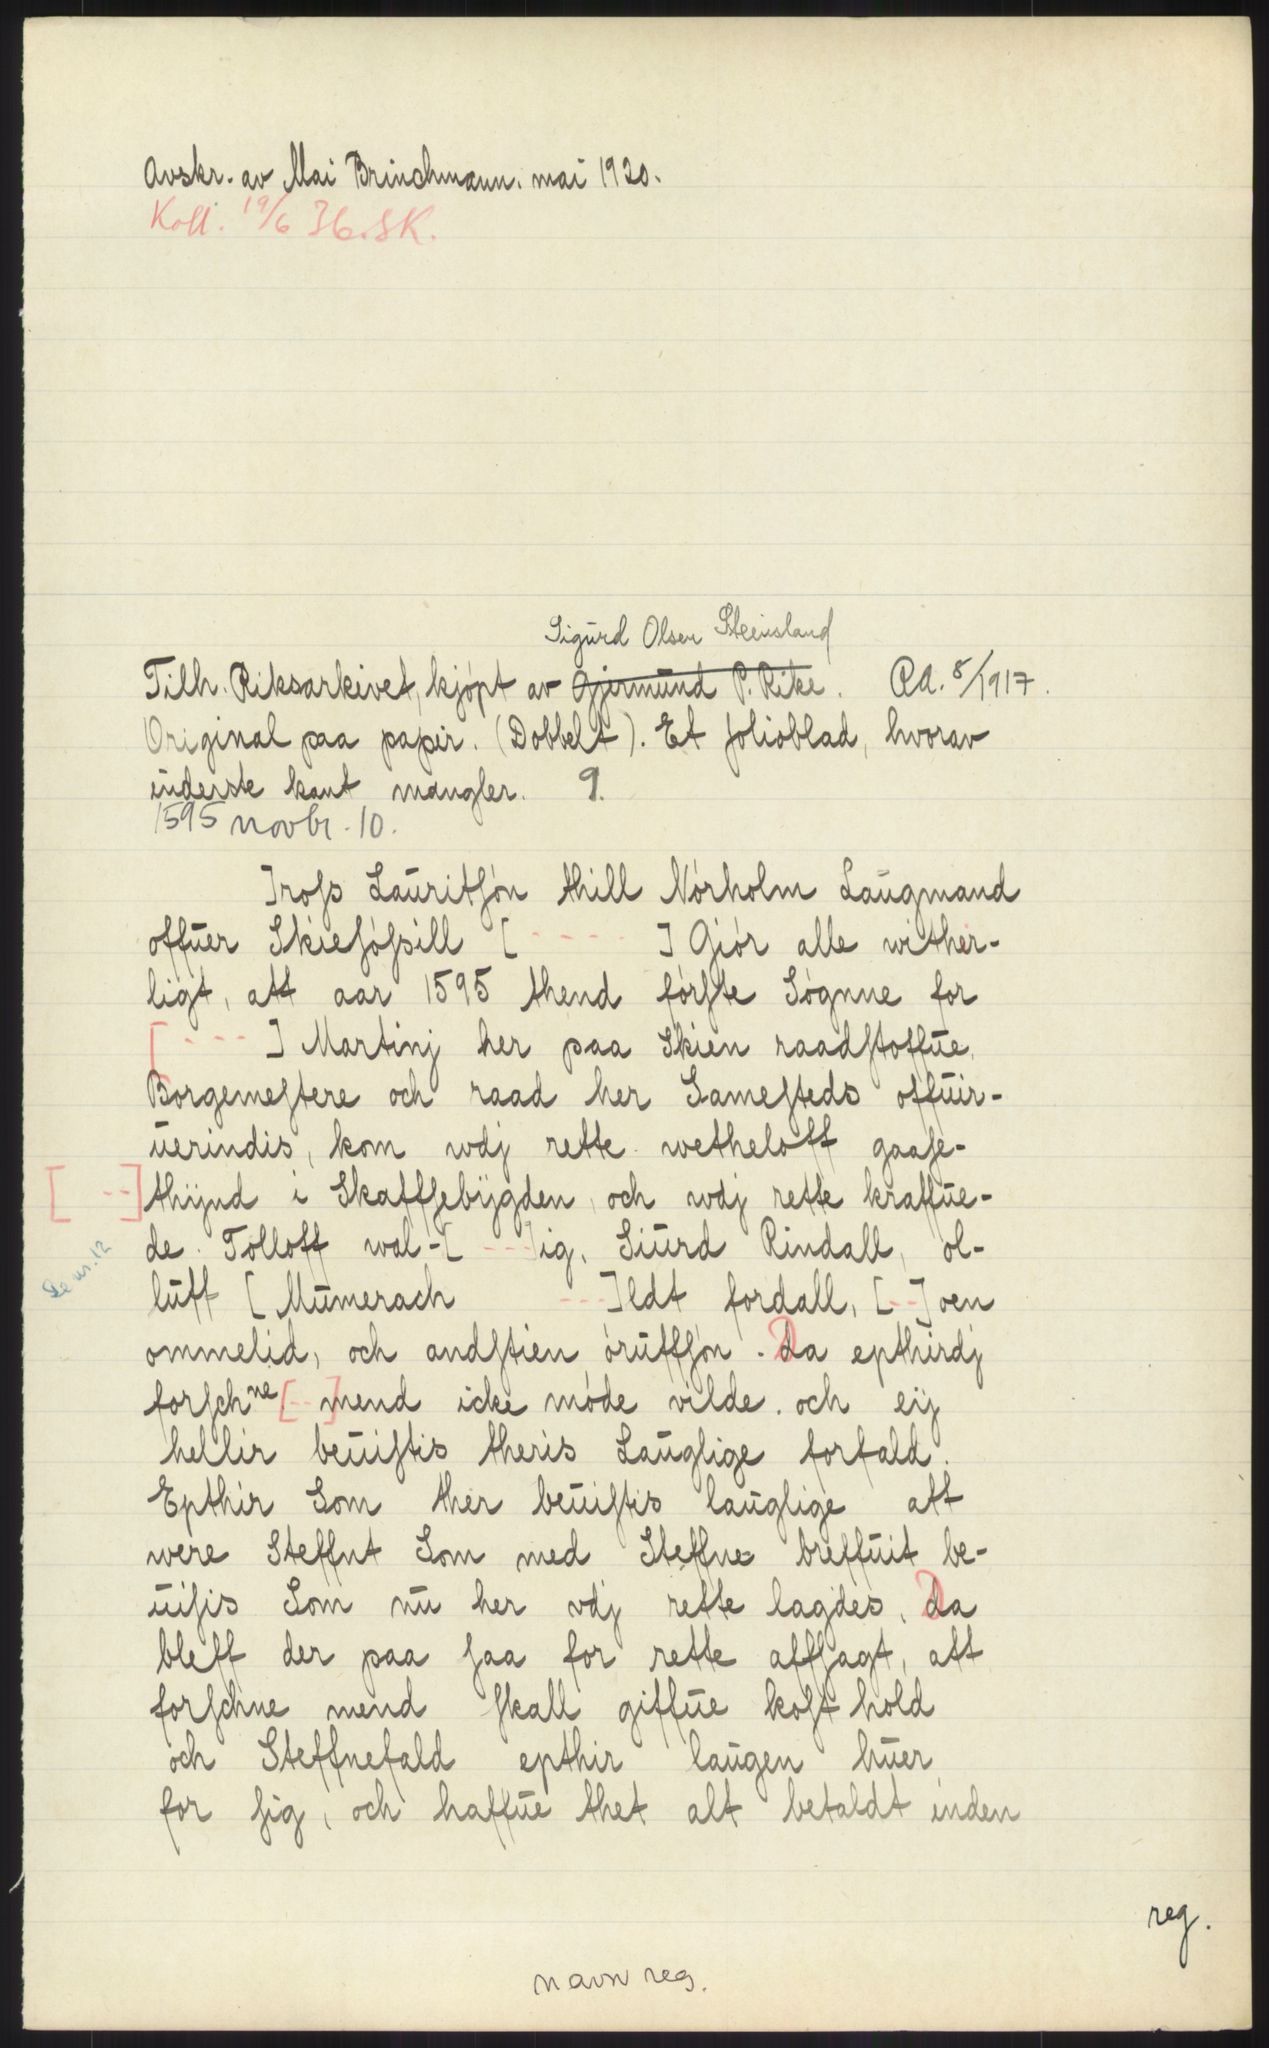 Avskr. av Mai Brinchmann. mai 1920.
Koll. 19/6 36. SK.
Sigurd Olsen Steinsland
Tilh. Riksarkivet, kjøpt av Gjermund P. Rike. RA. 8/1917.
Original paa papir. (Dobbelt). Et folioblad, hvorav
inderste kant mangler. 9.
1595 novbr. 10.
Jrofs Lauritſøn thill Nørholm Laugmand
offuer Skieſøfsill [ - - - - - ] Giør alle wither-
ligt, att aar 1595 thend førſte Søgnne for
[ - - - - ] Martinj her paa Skien raadſtoffue,
Borgemeſtere och raad her Sameſteds offuir-
uerindis, kom wdj rette wetheloff gaaſe-
[ - - ] thijnd i Skaffſebijgden, och wdj rette kraffue-
de. Tolloff wal-[ - - - ]ig, Siurd Rindall, ol-
Se nr. 12
luff [Mumerach - - - ]ldt fordall, [ - - ] oen
ommelid, och andſtien óruffſón. Da epthirdj
forſchne [ - - ] mend icke móde vilde. och eij
hellir beuiſtis theris Lauglige forfald.
Epthir Som ther beuiſtis lauglige att
were Steffnt Som med Steffne breffuit be-
uiſis Som nu her vdj rette lagdes, Da
bleff der paa ſaa for rette affſagt, att
forſchne mend ſkall giffue koſt hold
och Steffnefald epthir laugen huer
for ſig, och haffue thet alt betaldt inden
reg.
navn reg.